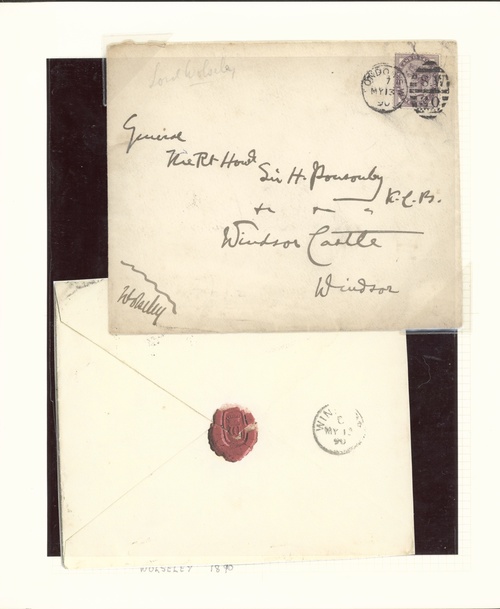 Lord Wolseley
LONDON
7
MY 13
90
General
The Rt Honble
Sir H. Ponsonby
K.C.B.
Windsor Castle
Windsor
Wolseley
WIN
C
MY 13
90
WOLSELEY 1890